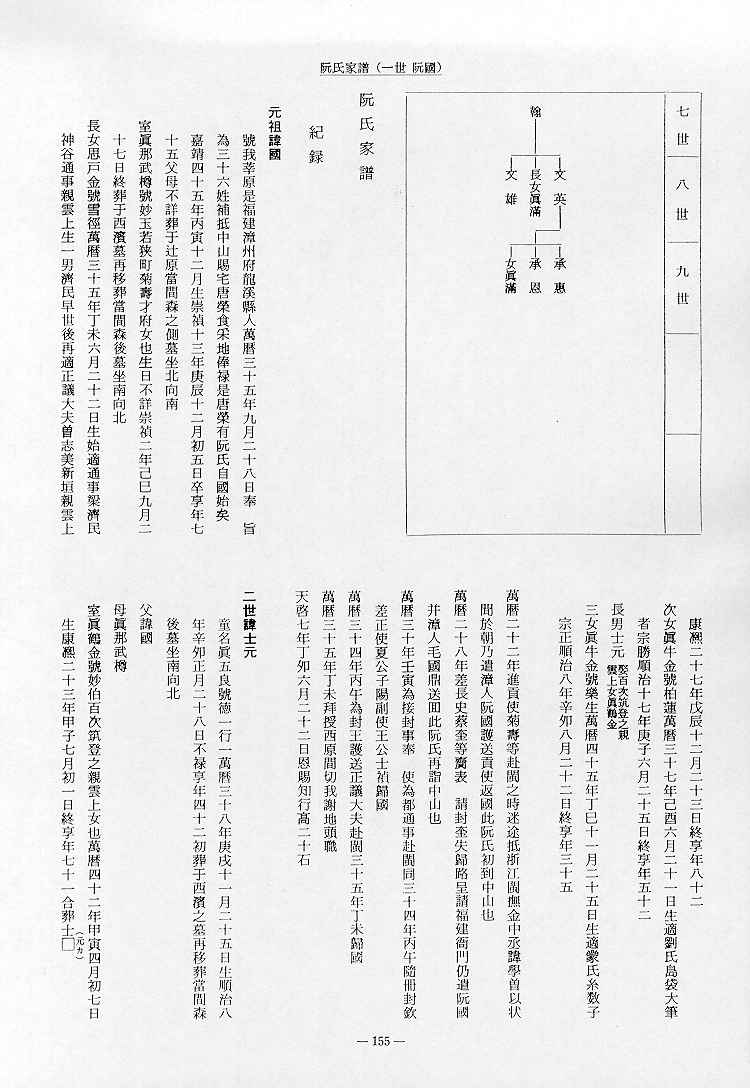 阮氏家譜（一世 阮國）
七世
八世
九世
翰
文英
長女眞滿
文雄
承惠
承恩
女眞滿
阮氏家譜
紀録
元祖諱國
號我莘原是福建漳州府龍溪縣人萬曆三十五年九月二十八日奉　旨
為三十六姓補抵中山賜宅唐榮食采地俸禄是唐榮有阮氏自國始矣
嘉靖四十五年丙寅十二月生崇禎十三年庚辰十二月初五日卒享年七
十五父母不詳葬于辻原當間森之側墓坐北向南
室眞那武樽號妙玉若狹町菊壽才府女也生日不詳崇禎二年己巳九月二
十七日終葬于西濱墓再移葬當間森後墓坐南向北
長女思戸金號雪徑萬曆三十五年丁未六月二十二日生始適通事梁濟民
神谷通事親雲上生一男濟民早世後再適正議大夫曽志美新垣親雲上
康熈二十七年戊辰十二月二十三日終享年八十二
次女眞牛金號柏蓮萬曆三十七年己酉六月二十一日生適劉氏島袋大筆
者宗勝順治十七年庚子六月二十五日終享年五十二
長男士元 娶百次筑登之親雲上女眞鶴金
三女眞牛金號樂生萬曆四十五年丁巳十一月二十五日生適蒙氏糸数子
宗正順治八年辛夘八月二十二日終享年三十五
萬曆二十二年進貢使菊壽等赴閩之時迷途抵浙江閩撫金中丞諱學曽以状
聞於朝乃遣漳人阮國護送貢使返國此阮氏初到中山也
萬曆二十八年差長史蔡奎等賫表　請封奎失歸路呈請福建衙門仍遣阮國
并漳人毛國鼎送囬此阮氏再詣中山也
萬曆三十年壬寅為接封事奉　使為都通事赴閩同三十四年丙午隨冊封欽
差正使夏公子陽副使王公士禎歸國
萬曆三十四年丙午為封王護送正議大夫赴閩三十五年丁未歸國
萬曆三十五年丁未拜授西原間切我謝地頭職
天啓七年丁夘六月二十二日恩賜知行髙二十石
二世諱士元
童名眞五良號徳一行一萬曆三十八年庚戌十一月二十五日生順治八
年辛夘正月二十八日不禄享年四十二初葬于西濱之墓再移葬當間森
後墓坐南向北
父諱國
母眞那武樽
室眞鶴金號妙伯百次筑登之親雲上女也萬曆四十二年甲寅四月初七日
生康熈二十三年甲子七月初一日終享年七十一合葬士□（元カ）
― 155 ―